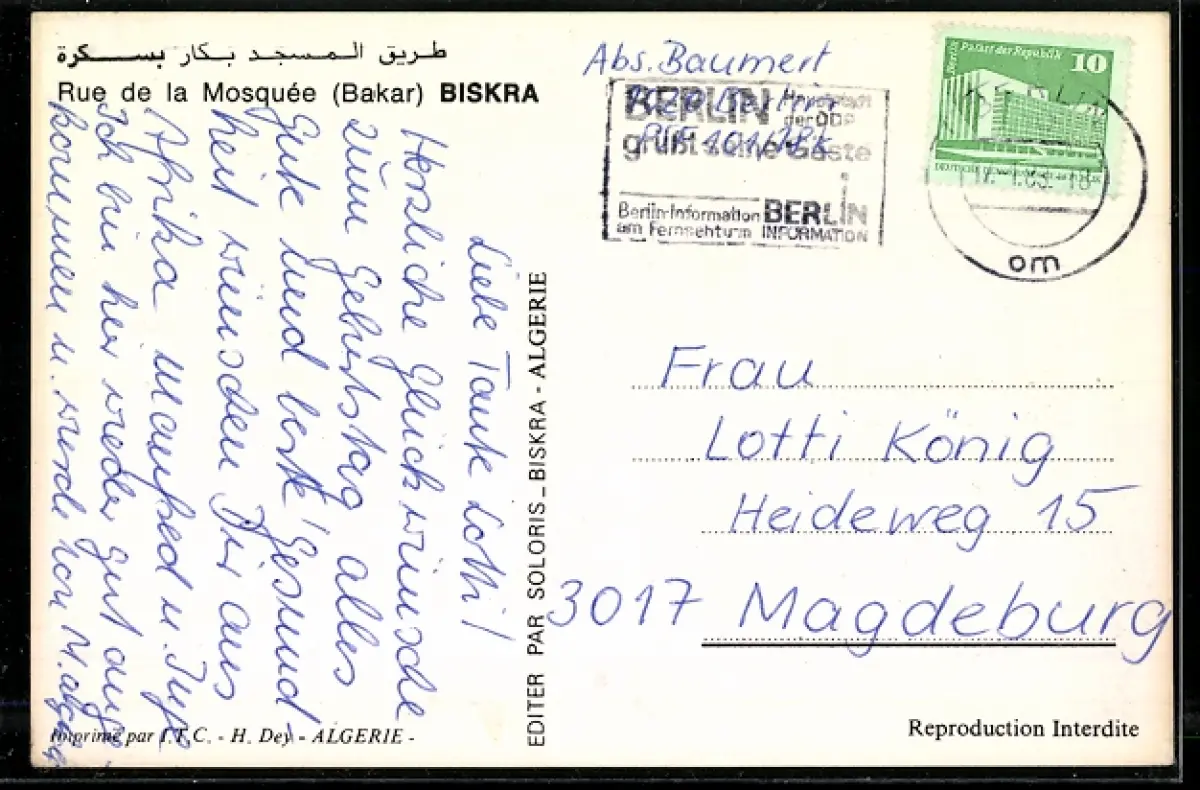 طريق المسجد بكار بسكرة
Rue de la Mosquée (Bakar) BISKRA
Liebe Tante Lotti!
Herzliche Glückwünsche
zum Geburtstag alles
Gute und beste Gesund-
heit wünschen Dir aus
Afrika Manfred u.
Ich bin hier wieder gut ange
kommen u. werde von M.
Imprimé par I.T.C. - H. Dey - ALGERIE -
EDITER PAR SOLORIS_BISKRA - ALGERIE
Abs. Baumert
BERLIN Hauptstadt
der DDR
grüßt seine Gäste
Berlin-Information BERLIN
am Fernsehturm INFORMATION
Berlin Palast der Republik 10
om
Frau
Lotti König
Heideweg 15
3017 Magdeburg
Reproduction Interdite